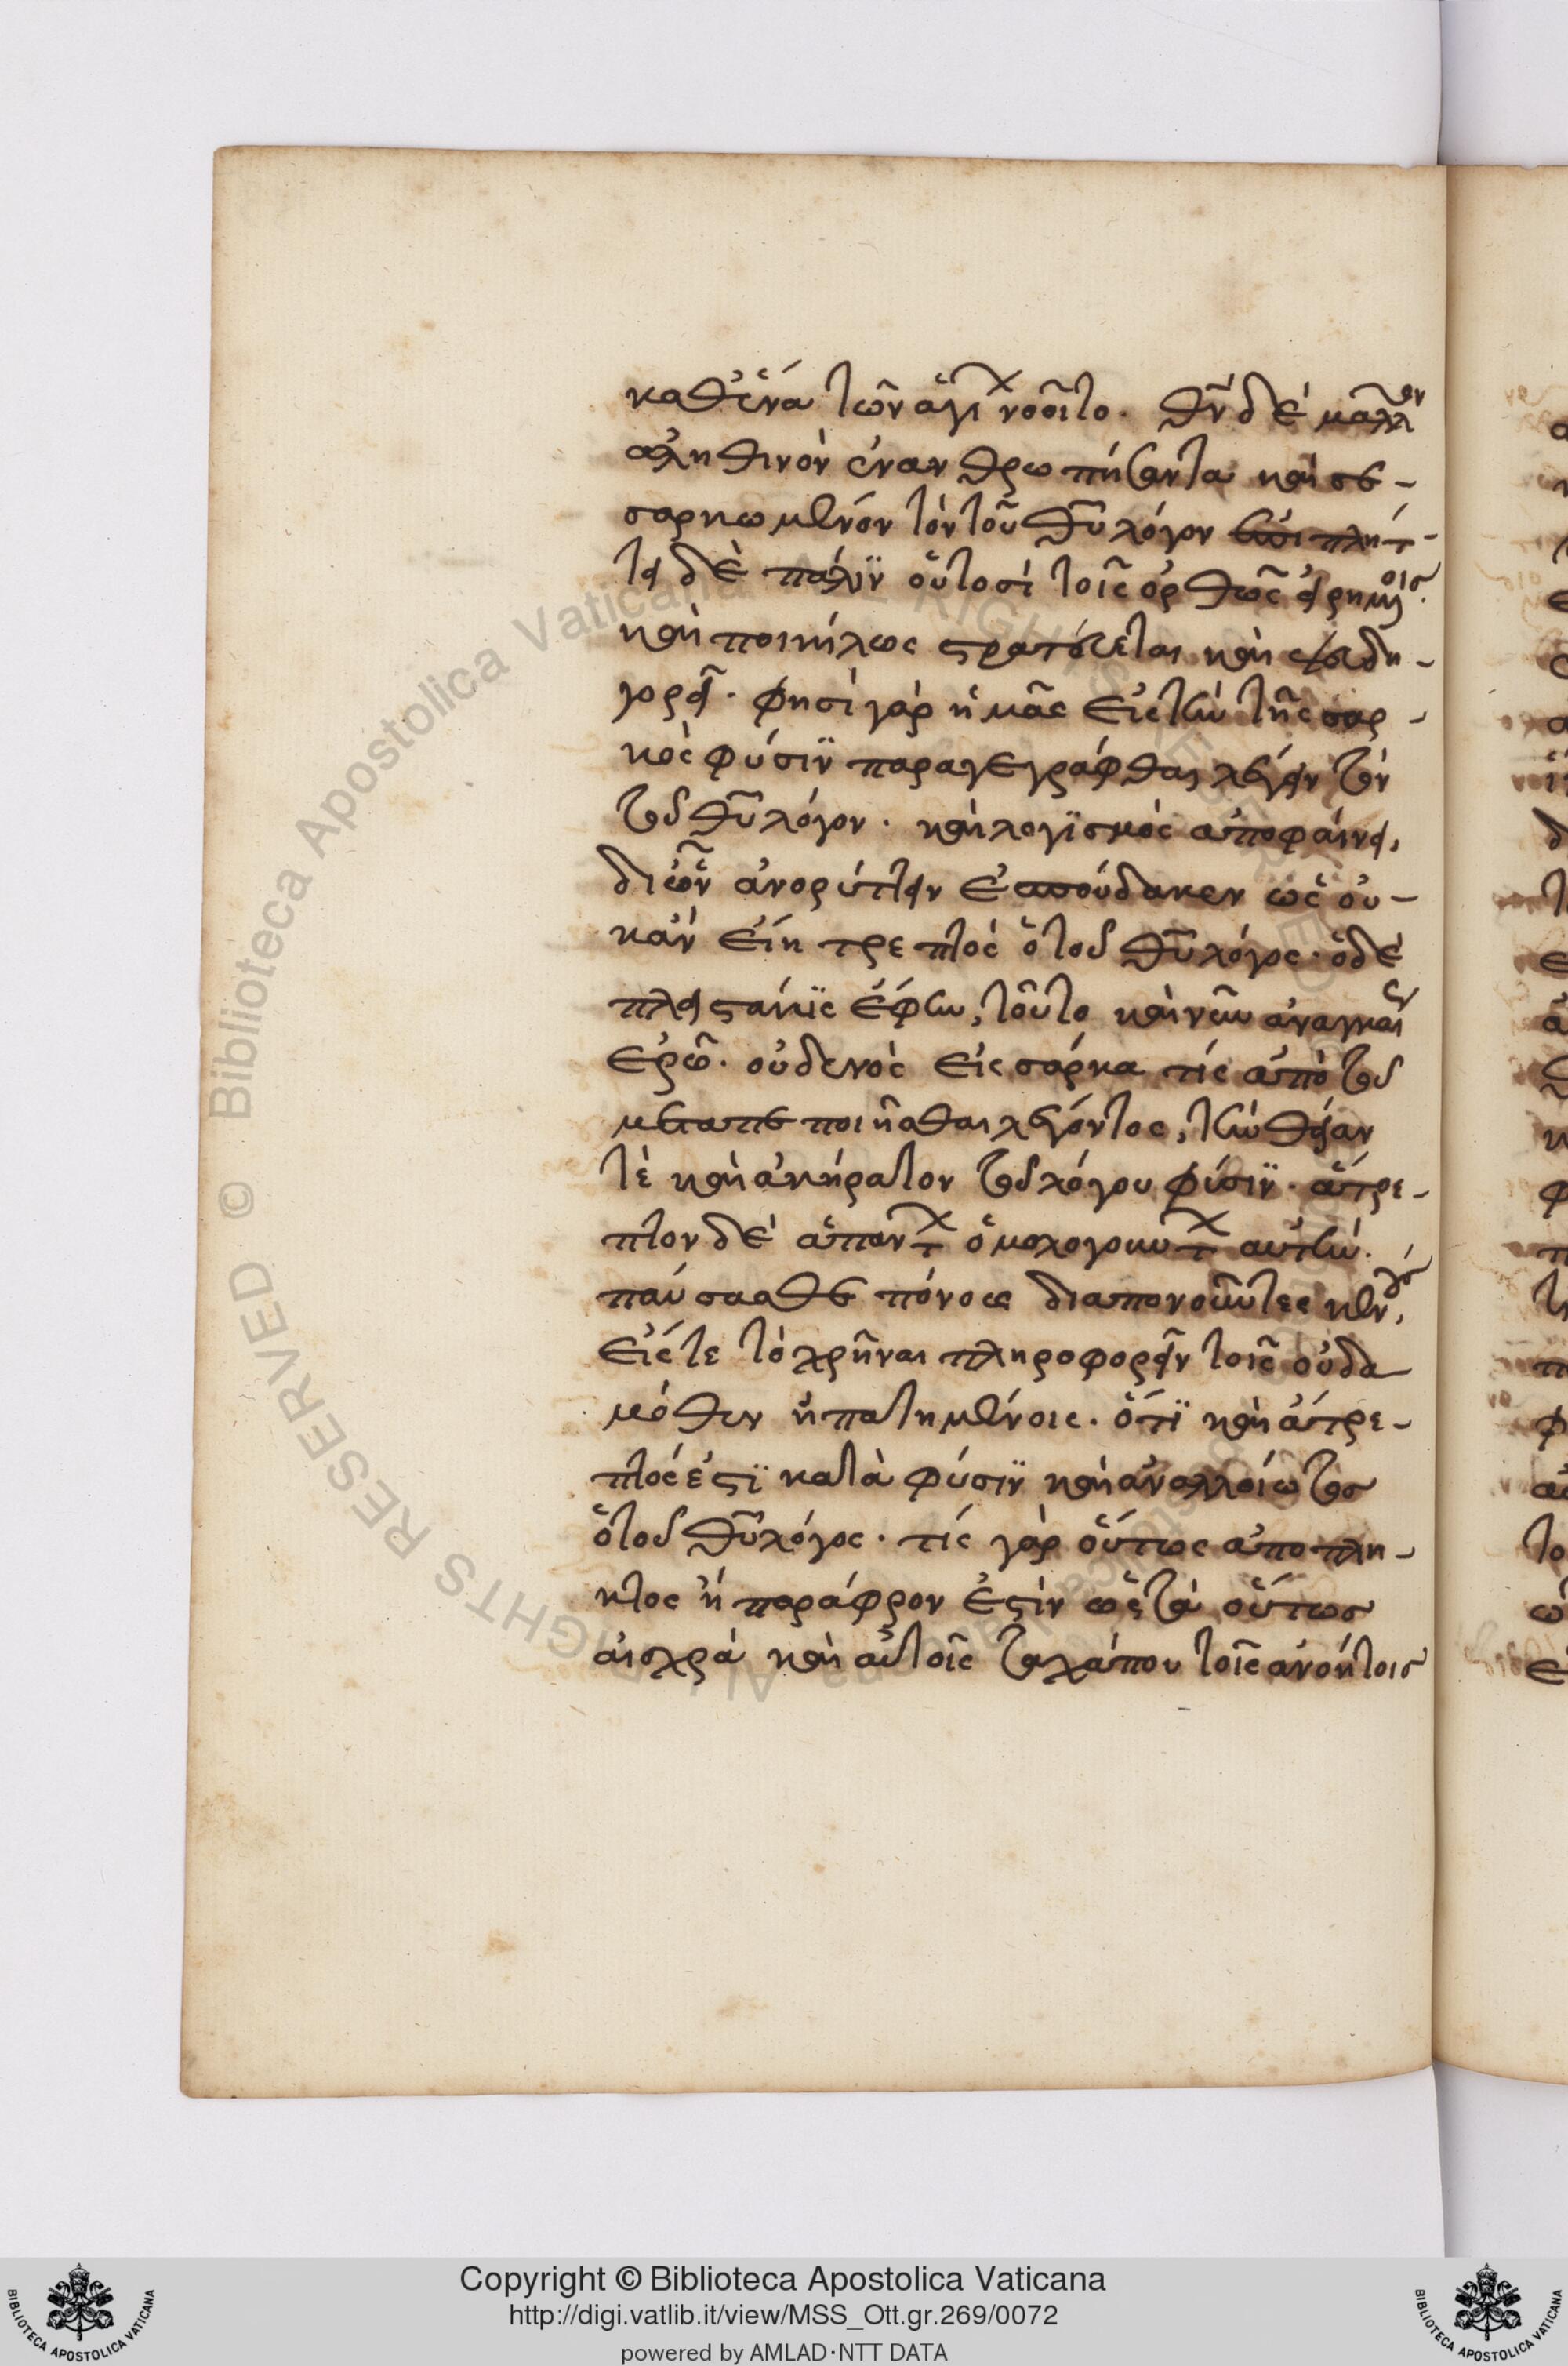 καθ' ἕνα τῶν ἁγίων νοοῖτο. θ(εὸ)ν δὲ μᾶλλον
ἀληθινὸν ἐνανθρωπήσαντα καὶ σε-
σαρκωμένον τὸν τοῦ θ(εο)ῦ λόγον ἐπιπλήτ-
τει δὲ πάλϊν οὑτοσὶ τοῖς ὀρθῶς εἰρημένοις.
καὶ ποικίλως στρατεύεται καὶ ψευδη-
γορεῖ. φησὶ γὰρ ἡμᾶς εἰς τὴν τῆς σαρ-
κὸς φύσϊν παραγεγράφθαι λέγειν τὸν
τοῦ θ(εο)ῦ λόγον. καὶ λογϊσμὸς ἀποφαίνει,
δι' ὧν ἀνορύττειν ἐσπούδακεν ὡς οὐ-
κ ἂν εἴη τρεπτὸς ὁ τοῦ θ(εο)ῦ λόγος. ὃ δὲ
πλειστάκϊς ἔφην, τοῦτο καὶ νῦν ἀναγκαίως
ἐρῶ. οὐδενὸς εἰς σάρκα τίς ἀπὸ τοῦ
μεταπεποιῆσθαι λέγοντος, τὴν θείαν
τὲ καὶ ἀκήρατον τοῦ λόγου φύσϊν. ἄτρε-
πτον δὲ ἁπάντων ὁμολογούντων αὐτὴν.
παύσασθε πόνους διαπονοῦντες κενούς,
εἴς τε τὸ χρῆναι πληροφορεῖν τοῖς οὐδα
μόθεν ἠπατημένοις. ὅτϊ καὶ ἄτρε-
πτός ἐστϊ κατὰ φύσϊν καὶ ἀναλλοίωτος
ὁ τοῦ θ(εο)ῦ λόγος. τίς γὰρ οὕτως ἀπόπλη-
κτος ἢ παράφρον ἐστὶν ὡς τὰ οὕτως
αἰσχρὰ καὶ αὐτοῖς ταχάπου τοῖς ἀνοήτοις
Copyright © Biblioteca Apostolica Vaticana
http://digi.vatlib.it/view/MSS_Ott.gr.269/0072
powered by AMLAD·NTT DATA